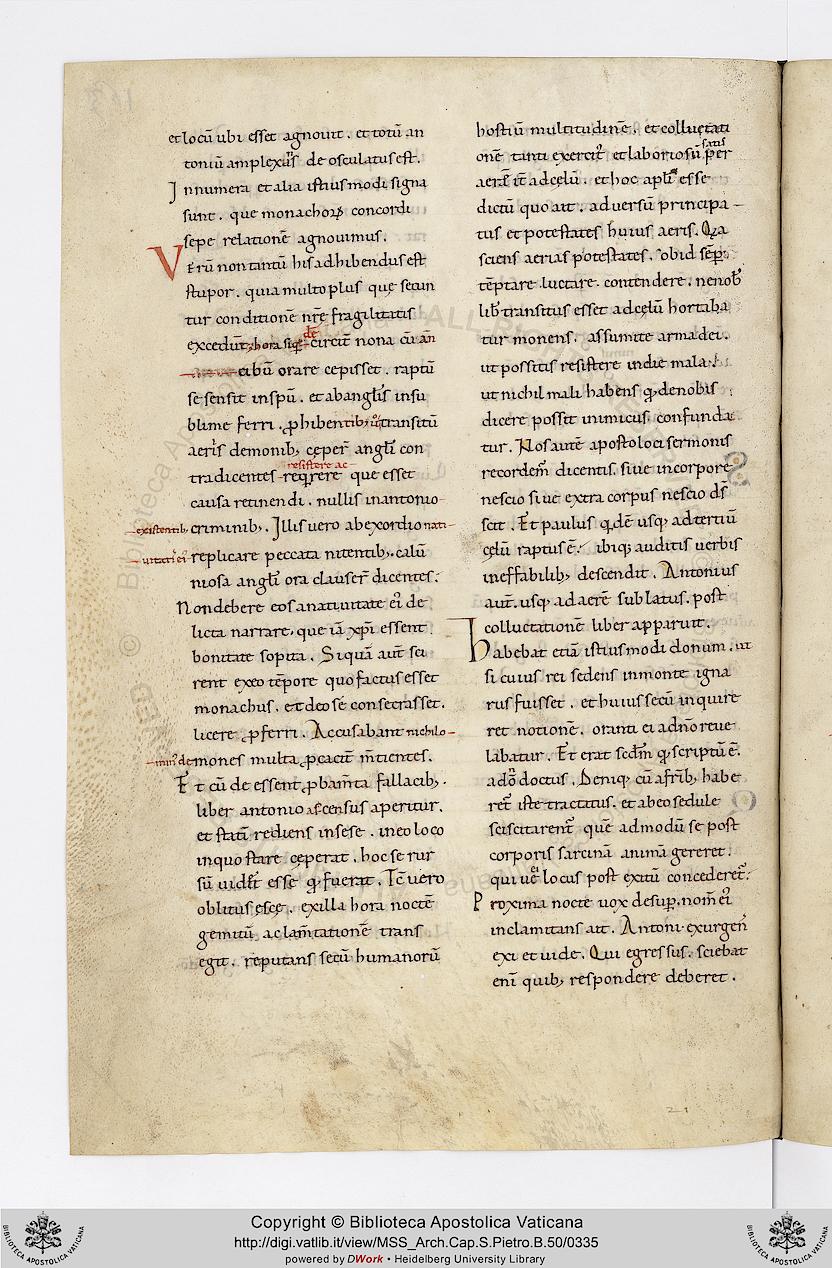 et locū ubi esset agnouit. et totū an
toniū amplexus de osculatus est.
Innumera et alia istius modi signa
sunt. que monachoꝝ concordi
sepe relatione agnouimus.
Verū non tantū his adhibendus est
stupor. quia multo plus que secun
tur conditionē nrē fragilitatis
circit̄ nona cū an
cibū orare cepisset. raptū
se sensit in spū. et ab angl̄is in su
blime ferri. ꝓhibentibꝫ transitū
aeris demonibꝫ ceper̄ angl̄i con
resistere ac
tradicentes reqrere que esset
causa retinendi. nullis in antonio
existentibꝫ criminibꝫ. Illis uero ab exordio nati
uitatis ei replicare peccata nitentibꝫ. calū
niosa angl̄i ora clauser̄ dicentes.
Non debere eos a natiuitate ei de
licta narrare. que iā xp̄i essent
bonitate sopita. Si quā aut̄ sci
rent ex eo tēpore quo factus esset
monachus. et deo sē consecrasset.
licere ꝓferri. Accusabant nichilo
min' demones multa ꝓcacit̄ m̄tientes.
Et cū de essent ꝓbam̄ta fallacibꝫ.
liber antonio ascensus aperitur.
et statī rediens in sese. in eo loco
in quo stare ceperat. hoc se rur
sū uidet esse qꝫ fuerat. Tc̄ uero
oblitus esce. ex illa hora noctē
gemitū ac lam̄tatione trans
egit. reputans secū humanorū
hostiū multitudinē. et colluctati
onē tanti exercit'. et laboriosū satis per
aerē it' ad celū. et hoc apl̄m esse
dictū quo ait. aduersū principa
tus et potestates huius aeris. Qui a
sciens aerias potestates. ob id sēꝑ
tēptare. luctare. contendere. ne nob̄
lib̄ transitus esset ad celū hortaba
tur monens. assumite arma dei.
ut possitis resistere in die mala.
ut nichil mali habens qꝫ de nobis
dicere possit inimicus. confunda
tur. Nos autē apostoloci sermonis
recordem̄ dicentis. siue in corpore
nescio siue extra corpus nescio ds̄
scit. Et paulus qdē usqꝫ ad tertiū
celū raptus ē. ibiqꝫ auditis uerbis
ineffabilibꝫ descendit. Antonius
aut̄. usqꝫ ad aerē sublatus. post
colluctationē liber apparuit.
Habebat etiā istius modi donum. ut
si cuius rei sedens in monte igna
rus fuisset. et huius secū inquire
ret notionē. oranti ei a dn̄o reue
labatur. Et erat scdm̄ qꝫ scriptū ē.
a dō doctus. Deniqꝫ cū afrībꝫ habe
ret̄ iste tractatus. et ab eo sedule
sciscitarent̄ que ad modū se post
corporis sarcinā anima gereret.
qui uel locus post exitū concederet̄.
Proxima nocte uox desuꝑ. nom̄ ei
inclamitans ait. Antoni exurgen̄
exi et uide. Qui egressus. sciebat
enī quibꝫ respondere deberet.
Copyright © Biblioteca Apostolica Vaticana
http://digi.vatlib.it/view/MSS_Arch.Cap.S.Pietro.B.50/0335
powered by DWork • Heidelberg University Library